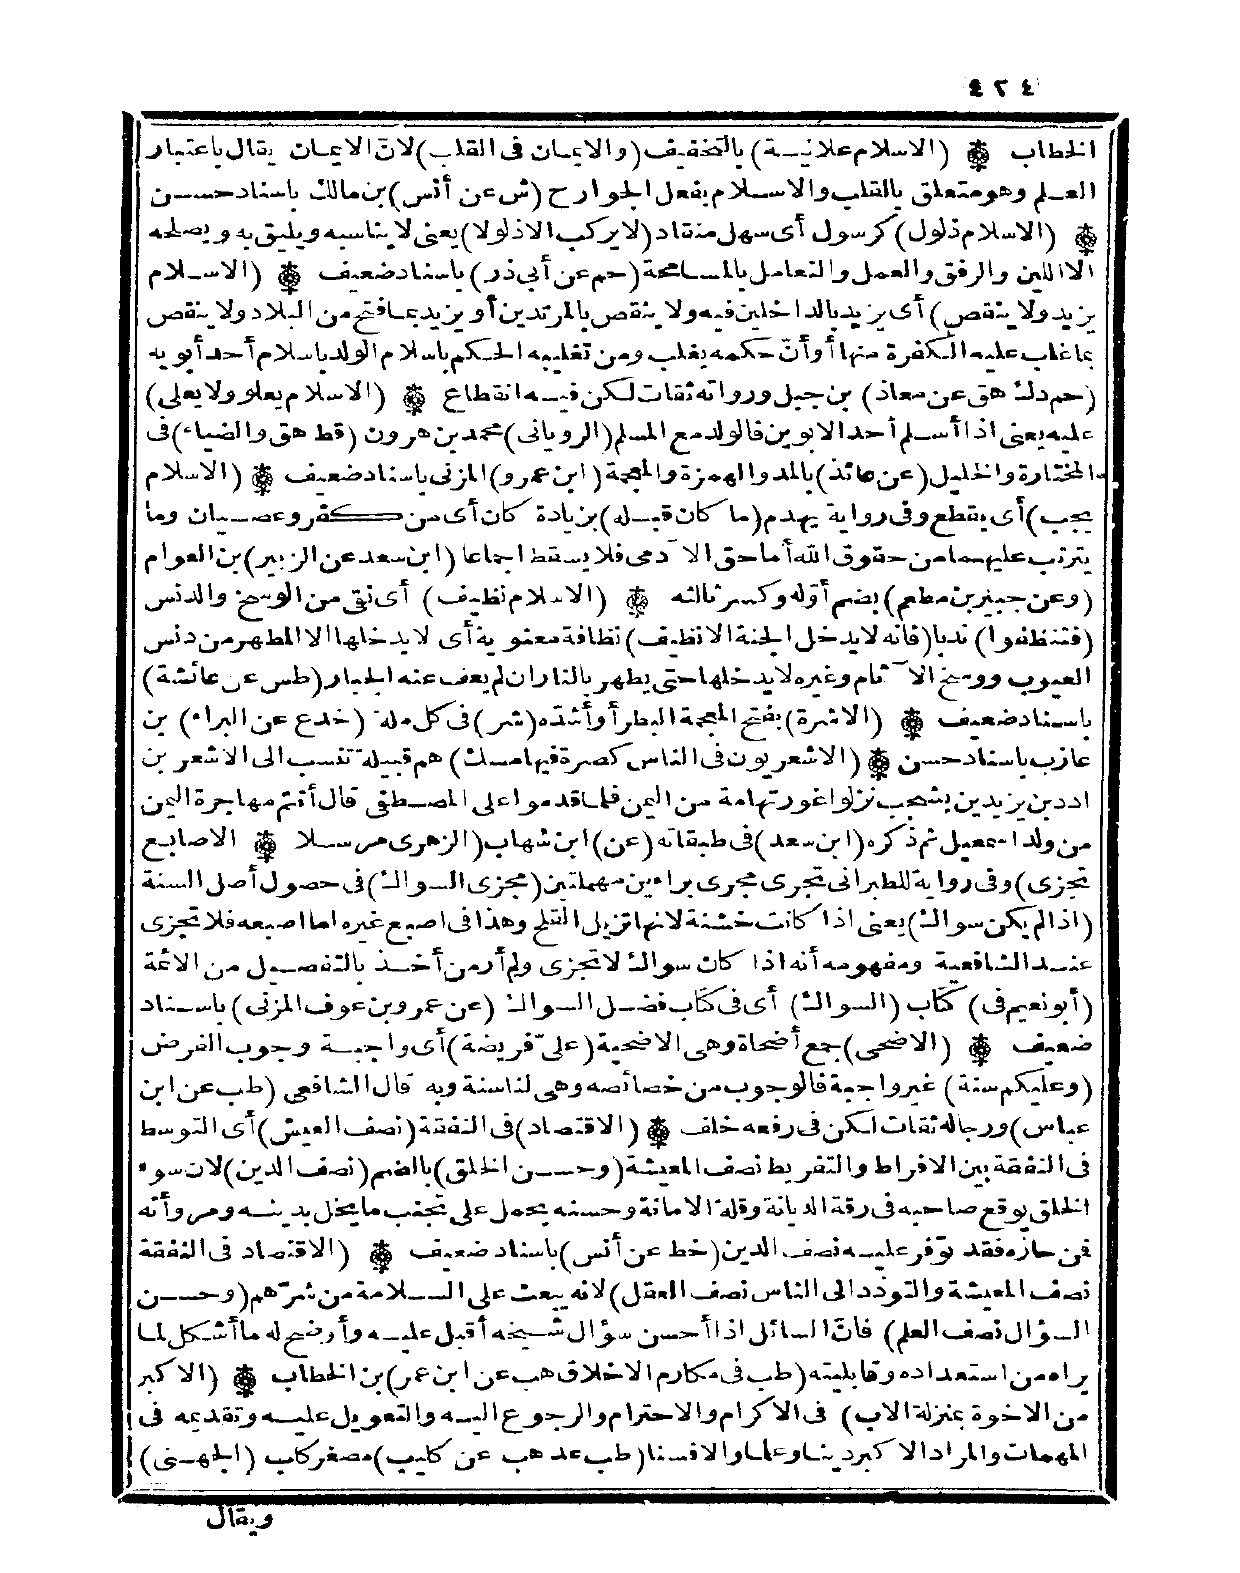 ٤٢٤
الخطاب ۞ (الاسلام علانيـة) بالتخفيف (والايمان فى القلب) لانّ الايمان يقال باعتبار
العـلم وهو متعلق بالقلب والاسـلام بفعل الجوارح (ش عن أنس) بن مالك باسناد حسـن
۞ (الاسلام ذلول) كرسول أى سهل منقاد (لا يركب الاذلولا) يعنى لا يناسبه ويليق به ويصلحه
الا اللين والرفق والعمل والتعامل بالمسامحة (حم عن أبى ذر) باسناد ضعيف ۞ (الاسـلام
يزيد ولا ينقص) أى يزيد بالداخلين فيه ولا ينقص بالمرتدين أو يزيد بما فتح من البلاد ولا ينقص
بما غلب عليه الكفرة منها أو أنّ حكمه يغلب ومن تغليبه الحكم باسلام الولد باسلام أحد أبويه
(حم د ك هق عن معاذ) بن جبل ورواته ثقات لكن فيـه انقطاع ۞ (الاسلام يعلو ولا يعلى)
عليه يعنى اذا أسـلم أحد الابوين فالولد مع المسلم (الرويانى) محمد بن هرون (قط هق والضياء) فى
المختارة والخليل (عن عائذ) بالمد والهمزة والمعجمة (ابن عمرو) المزنى باسناد ضعيف ۞ (الاسلام
يجب) أى يقطع وفى رواية يهدم (ما كان قبـله) بزيادة كان أى من كفر وعصـيان وما
يترتب عليهـما من حقوق الله أما حق الآدمى فلا يسقط اجماعا (ابن سعد عن الزبير) بن العوام
(وعن جبير بن مطعم) بضم أوّله وكسر ثالثه ۞ (الاسلام نظيف) أى نقى من الوسخ والدنس
(فتنظفوا) ندبا (فانه لا يدخل الجنة الانظيف) نظافة معنوية أى لا يدخلها الا المطهر من دنس
العيوب ووسخ الآثام وغيره لا يدخلها حتى يطهر بالنار ان لم يعف عنه الجبار (طس عن عائشة)
باسناد ضعيف ۞ (الاشرة) بفتح المعجمة البطر أو أشدّه (شر) فى كل ملة (خد ع عن البراء) بن
عازب باسناد حسن ۞ (الاشعريون فى الناس كصرة فيها مسك) هم قبيلة تنسب الى الاشعر بن
ادد بن يزيد بن يشجب نزلوا غور تهامة من اليمن فلما قدموا على المصـطفى قال أنتم مهاجرة اليمن
من ولد اسمعيل ثم ذكره (ابن سعد) فى طبقاته (عن) ابن شهاب (الزهرى مرسـلا ۞ الاصابع
تجزى) وفى رواية للطبرانى تجرى مجرى براءين مهملتين (مجزى السواك) فى حصول أصل السنة
(اذا لم يكن سواك) يعنى اذا كانت خشنة لانها تزيل القلح وهذا فى اصبع غيره اما اصبعه فلا تجزى
عنـد الشافعية ومفهومه أنه اذا كان سواك لا تجزى ولم أر من أخـذ بالتفصـيل من الائمة
(أبو نعيم فى) كتاب (السواك) أى فى كتاب فضـل السواك (عن عمرو بن عوف المزنى) باسـناد
ضعيف ۞ (الاضحى) جمع أضحاة وهى الاضحية (علىّ فريضة) أى واجبـة وجوب الفرض
(وعليكم سنة) غير واجبة فالوجوب من خصائصه وهى لنا سنة وبه قال الشافعى (طب عن ابن
عباس) ورجاله ثقات لكن فى رفعه خلف ۞ (الاقتصاد) فى النفقة (نصف العيش) أى التوسط
فى النفقة بين الافراط والتفريط نصف المعيشة (وحسـن الخلق) بالضم (نصف الدين) لان سوء
الخلق يوقع صاحبه فى رقة الديانة وقلة الامانة وحسنه يحمل على تجنب ما يخل بدينـه ومروأته
فمن حازه فقد توّفر عليـه نصف الدين (خط عن أنس) باسناد ضعيف ۞ (الاقتصاد فى النفقة
نصف المعيشة والتودّد الى الناس نصف العقل) لانه يبعث على السـلامة من شرّهم (وحسـن
السؤال نصف العلم) فانّ السائل اذا أحسن سؤال شـيخه أقبل عليـه وأوضح له ما أشكل لما
يراه من استعداده وقابليته (طب فى مكارم الاخلاق هب عن ابن عمر) بن الخطاب ۞ (الاكبر
من الاخوة بمنزلة الاب) فى الاكرام والاحترام والرجوع اليـه والتعويل عليـه وتقديمه فى
المهمات والمراد الاكبر دينا وعلما والافسنا (طب عد هب عن كليب) مصغر كلب (الجهـنى)
ويقال